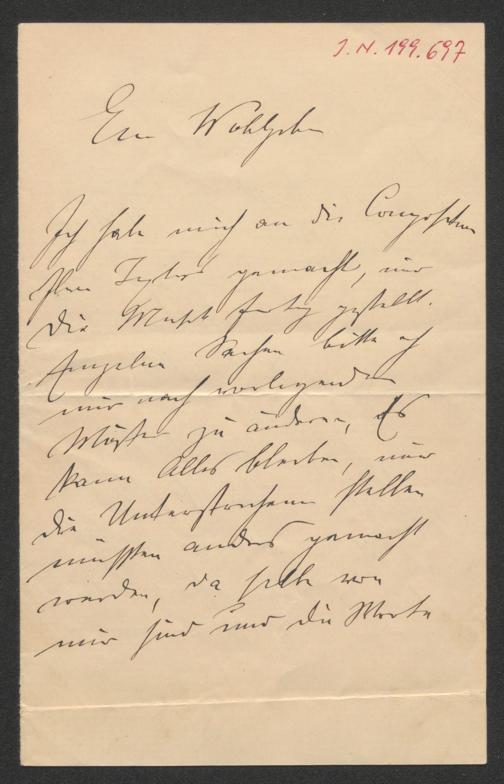 J.N. 199.697
Euer Wohlgeboren
Ich habe mich an die Composition
Ihres Textes gemacht, und
die Musik fertig gestellt.
Einzelne Sachen bitte ich
nur nach vorliegendem
Muster zu ändern, Es
kann Alles bleiben, nur
die Unterstrichenen Stellen
müssten anders gemacht
werden, da selbe von
mir sind und die Worte